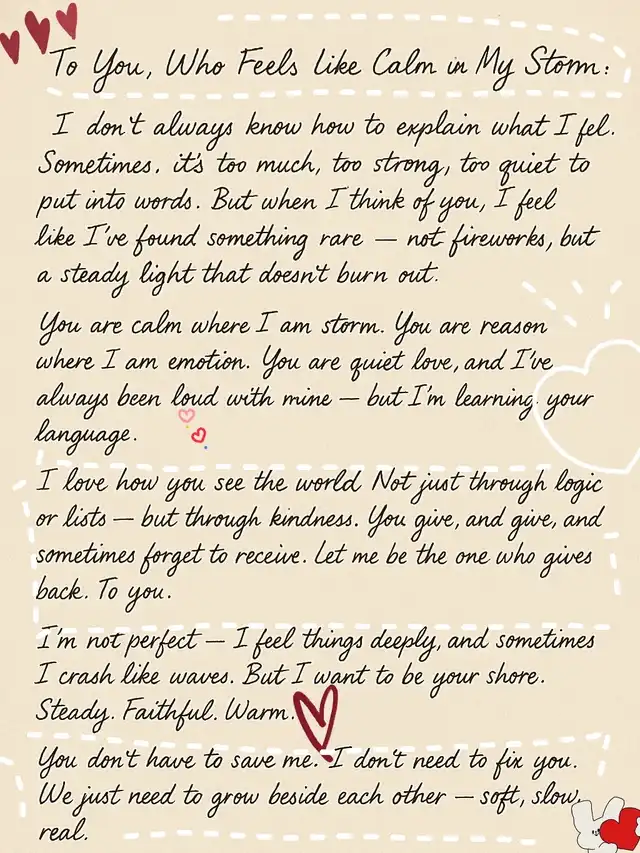 To You, Who Feels Like Calm in My Storm:
I don't always know how to explain what I fel.
Sometimes, it's too much, too strong, too quiet to
put into words. But when I think of you, I feel
like I've found something rare — not fireworks, but
a steady light that doesn't burn out.
You are calm where I am storm. You are reason
where I am emotion. You are quiet love, and I've
always been loud with mine — but I'm learning your
language.
I love how you see the world Not just through logic
or lists — but through kindness. You give, and give, and
sometimes forget to receive. Let me be the one who gives
back. To you.
I'm not perfect — I feel things deeply, and sometimes
I crash like waves. But I want to be your shore.
Steady. Faithful. Warm.
You don't have to save me. I don't need to fix you.
We just need to grow beside each other — soft, slow,
real.